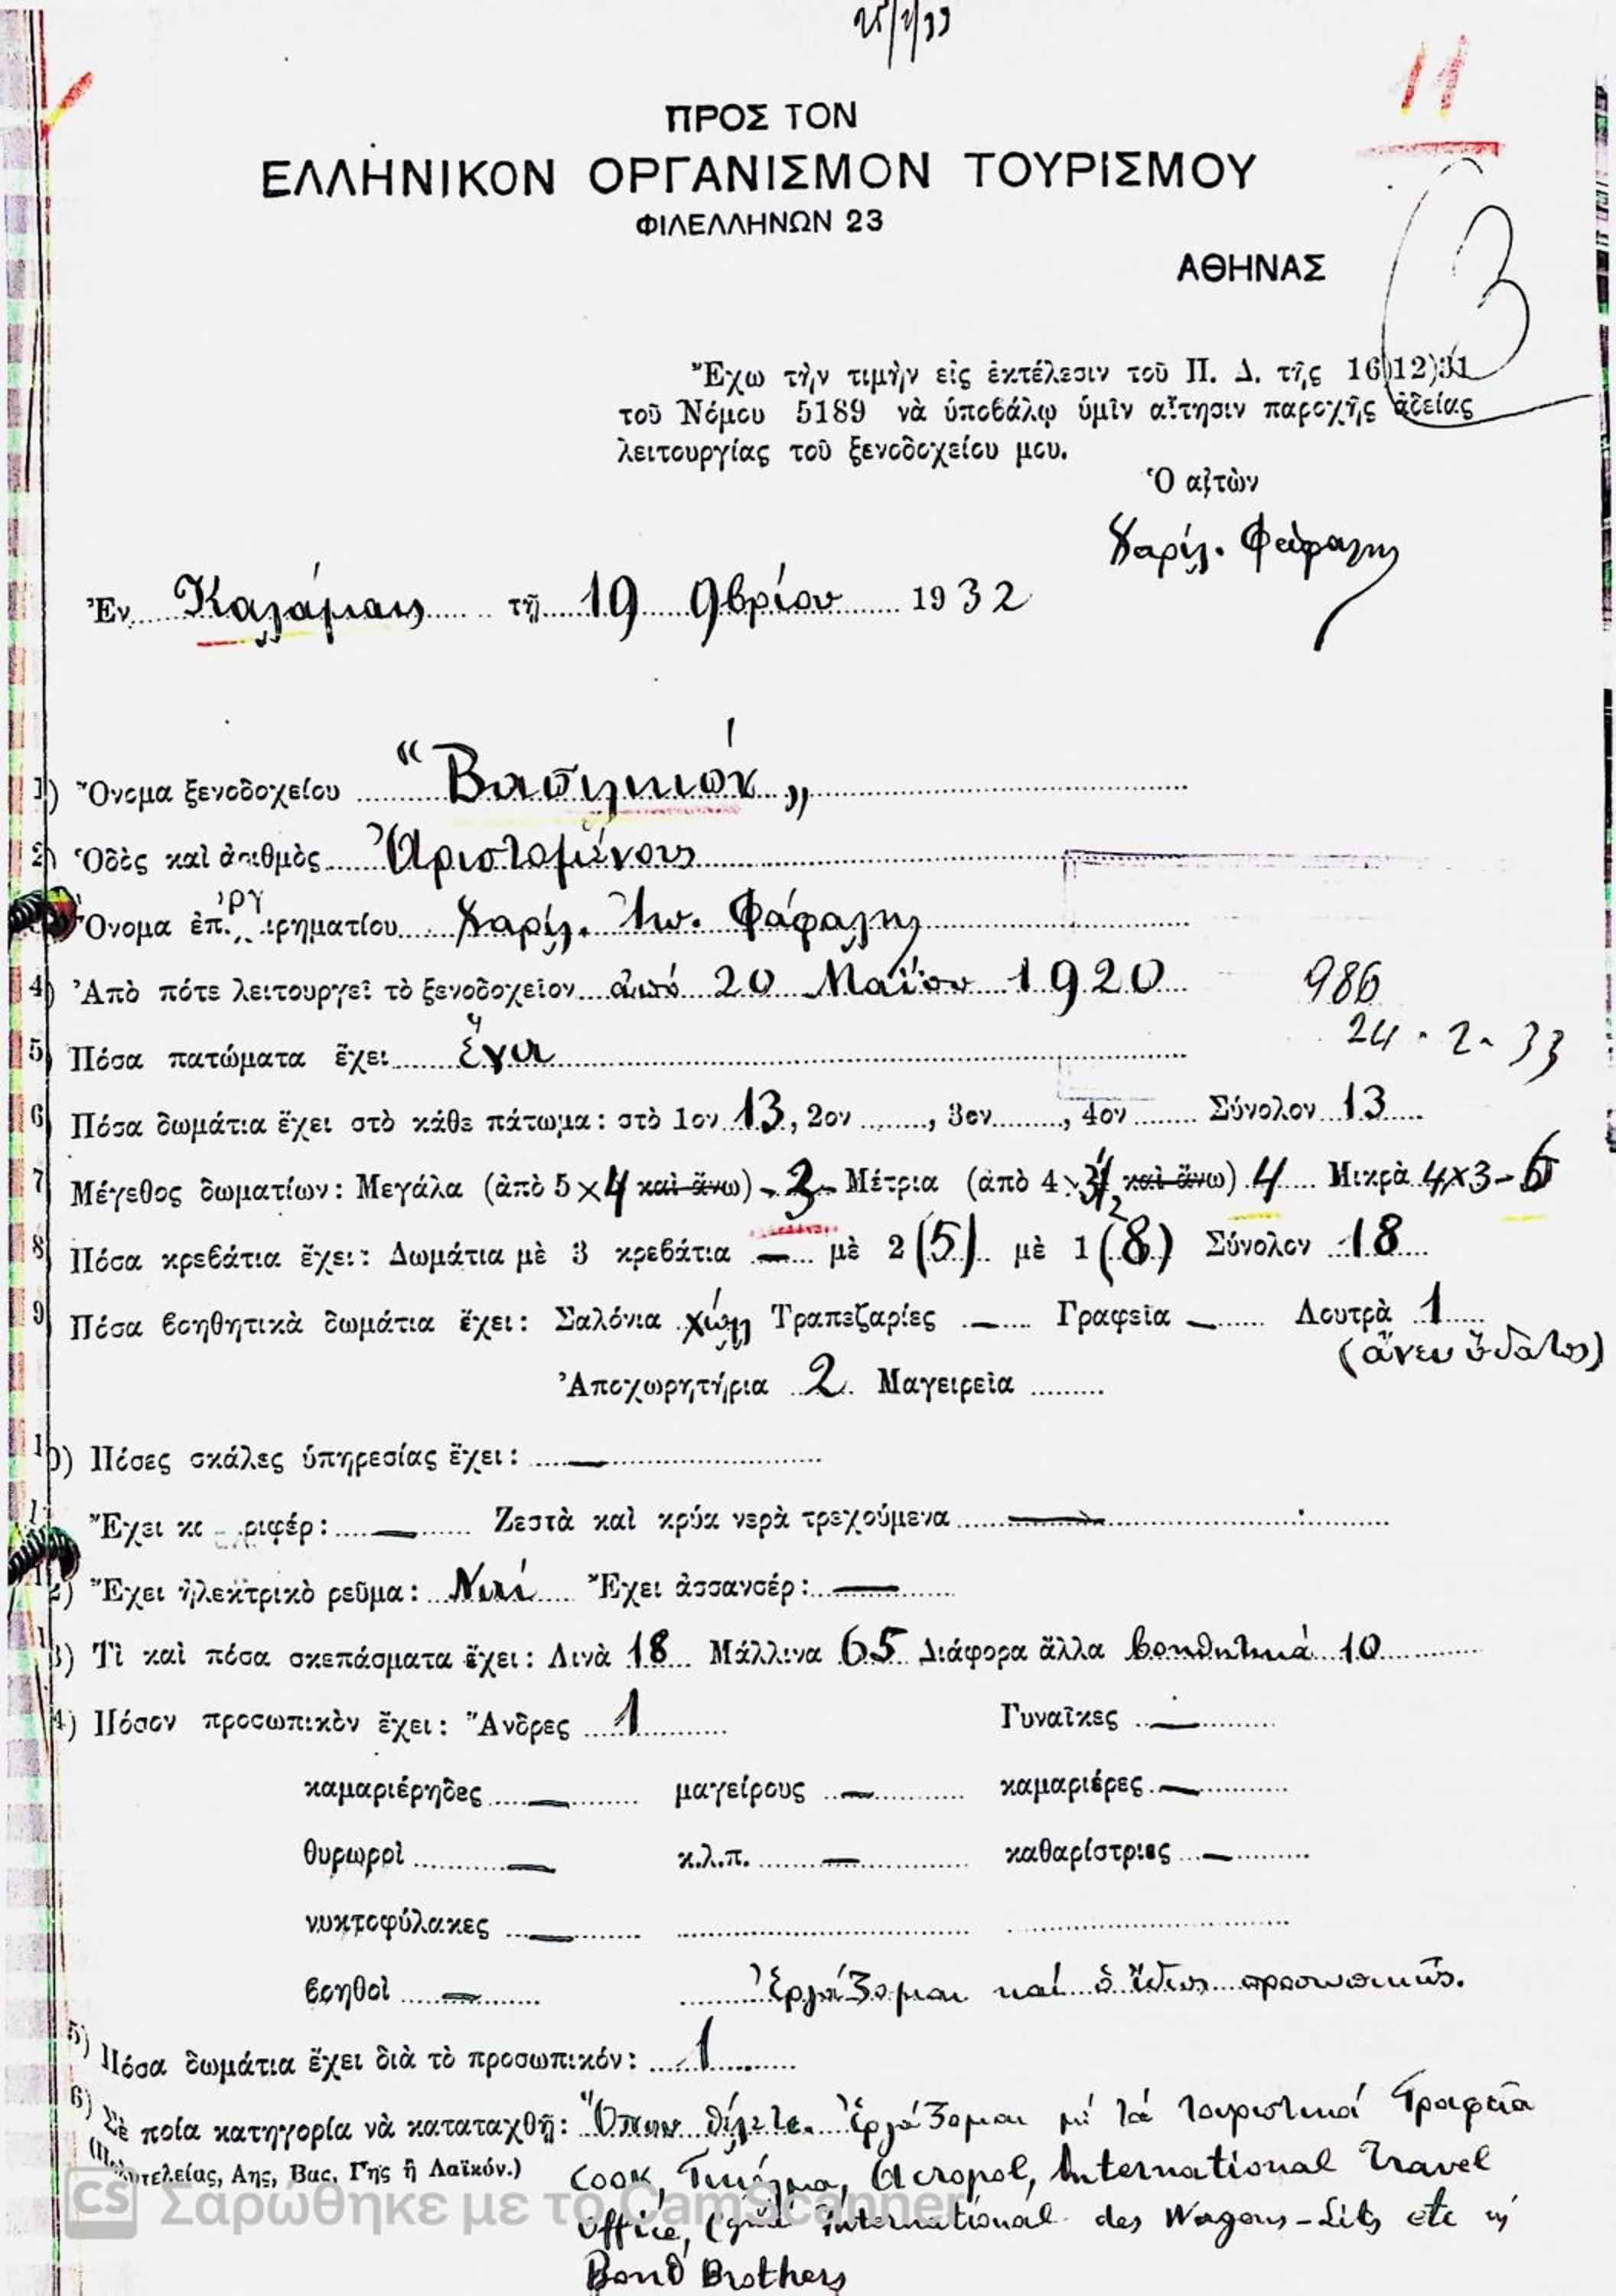 11
ΠΡΟΣ ΤΟΝ
ΕΛΛΗΝΙΚΟΝ ΟΡΓΑΝΙΣΜΟΝ ΤΟΥΡΙΣΜΟΥ
ΦΙΛΕΛΛΗΝΩΝ 23
ΑΘΗΝΑΣ
Ἔχω τὴν τιμὴν εἰς ἐκτέλεσιν τοῦ Π. Δ. τῆς 16)12)31
τοῦ Νόμου 5189 νὰ ὑποβάλω ὑμῖν αἴτησιν παροχῆς ἀδείας
λειτουργίας τοῦ ξενοδοχείου μου.
Ὁ αἰτῶν
Χαρίλ. Φάφαλης
Ἐν Καλάμαις τῇ 19 9βρίου 1932
1) Ὄνομα ξενοδοχείου "Βασιλικόν"
2) Ὁδὸς καὶ ἀριθμὸς Ἀριστομένους
Ὄνομα ἐπ. ιρηματίου Χαρίλ. Ἰω. Φάφαλης
4) Ἀπὸ πότε λειτουργεῖ τὸ ξενοδοχεῖον ἀπό 20 Μαΐου 1920
986
24-2-33
5) Πόσα πατώματα ἔχει ἕνα
6) Πόσα δωμάτια ἔχει στὸ κάθε πάτωμα: στὸ 1ον 13, 2ον, 3ον, 4ον Σύνολον 13
7) Μέγεθος δωματίων: Μεγάλα (ἀπὸ 5×4 καὶ ἄνω) - 3 - Μέτρια (ἀπὸ 4× καὶ ἄνω) 4 Μικρὰ 4×3-6
8) Πόσα κρεβάτια ἔχει: Δωμάτια μὲ 3 κρεβάτια — μὲ 2 (5) μὲ 1 (8) Σύνολον 18
9) Πόσα βοηθητικὰ δωμάτια ἔχει: Σαλόνια χώλ Τραπεζαρίες — Γραφεῖα — Λουτρὰ 1
(ἄνευ ὕδατος)
Ἀποχωρητήρια 2 Μαγειρεῖα
10) Πόσες σκάλες ὑπηρεσίας ἔχει: —
Ἔχει κα ριφέρ: — Ζεστὰ καὶ κρύα νερὰ τρεχούμενα —
2) Ἔχει ἠλεκτρικὸ ρεῦμα: Ναί Ἔχει ἀσσανσέρ: —
3) Τὶ καὶ πόσα σκεπάσματα ἔχει: Λινὰ 18 Μάλλινα 65 Διάφορα ἄλλα βοηθητικά 10
4) Πόσον προσωπικὸν ἔχει: Ἄνδρες 1 Γυναῖκες —
καμαριέρηδες — μαγείρους — καμαριέρες —
θυρωροὶ — κ.λ.π. — καθαρίστριες —
νυκτοφύλακες —
βοηθοὶ — Ἐργάζομαι καί ὁ ἴδιος προσωπικῶς.
5) Πόσα δωμάτια ἔχει διὰ τὸ προσωπικόν: 1
6) Σὲ ποία κατηγορία νὰ καταταχθῇ: Ὅπου θέλετε. Ἐργάζομαι μέ τά τουριστικά Γραφεῖα
υτελείας, Αης, Βας, Γης ἢ Λαϊκόν.) Cook, Acropol, International Travel
Office, International des Wagons-Lits etc
Bond Brothers
CS Σαρώθηκε με το CamScanner